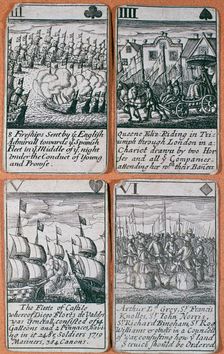 III
8 Fireships Sent by ye English
Admirall towards ye Spanish
Fleet in ye Middle of ye night
Under the Conduct of Young
and Prowse.
IIII
Queene Eliz. Riding in Tri
umph through London in a
Chariot drawn by two Hor
ses and all ye Companies
attending her wth their Baners
V
The Fleete of Castile
whereof Diego Flores de Valdes
was Generall, consisted of 14
Galleons and 2 Pinnaces,
ing in it 2458 Soldiers 1719
Mariners, 384 Canons.
VI
Arthur Ld Grey, Sr Francis
Knolles, Sr John Norris,
Sr Richard Bingham, Sr Rog
Williams
of war, consulting how ye land
Service should be Ordered